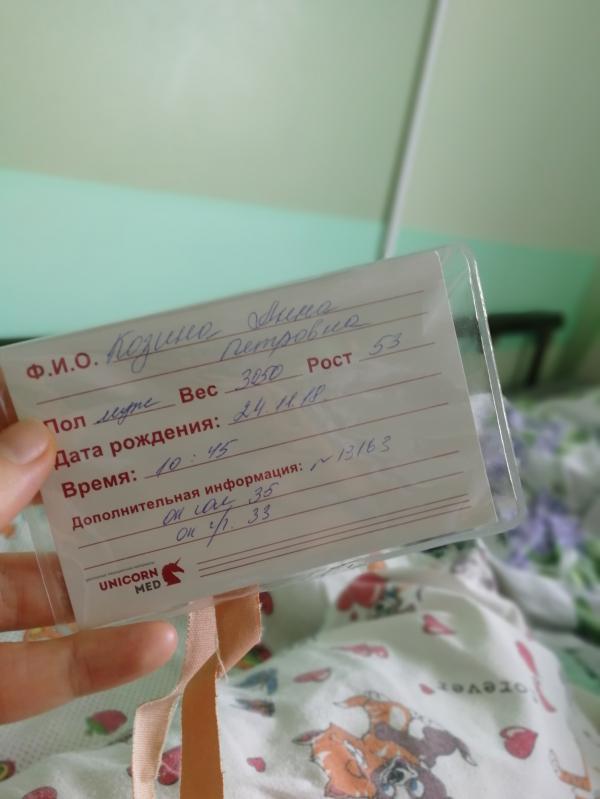 Ф.И.О. Козина Анна
Петровна
Пол муж Вес 3250 Рост 53
Дата рождения: 24.11.18
Время: 10:45
Дополнительная информация: N 13163
ок гол 35
ок гр. 33
UNICORN
MED
forever